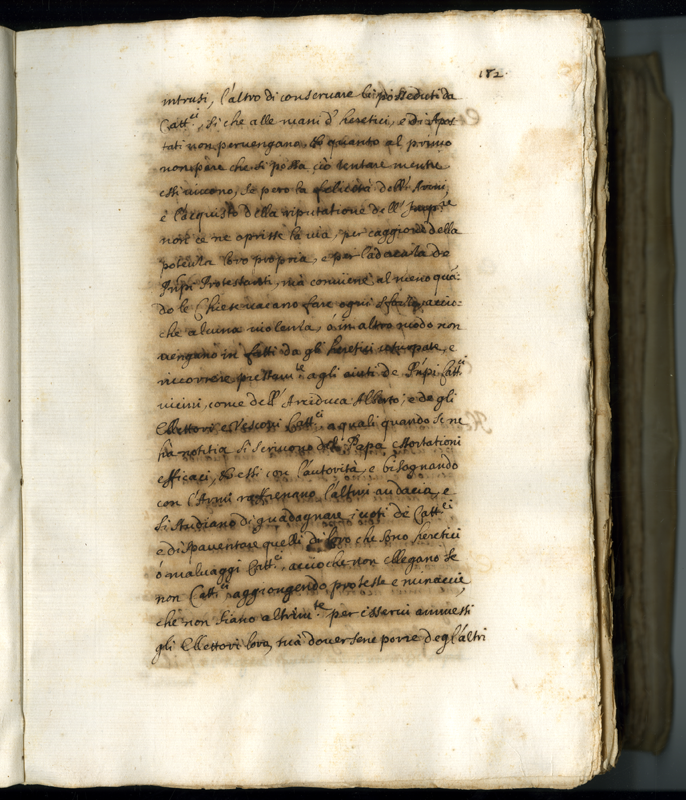 182.
intrusi, l'altro di conservare li posseduti da
Catt.ci, si che alle mani d'heretici, e di Apos-
tati non pervengano, et quanto al primo
non pare che si possa ciò tentare mentre
essi vivono, se però la felicità dell'Armi,
è l'acquisto della riputatione dell'
non ce ne aprisse la via, per caggione della
potenza loro propria, e per l'
Prñpi Protestanti, mà conviene al meno quã-
do le Chiese vacano fare ogni sforzo, accio-
che alcuna violenza, ò in altro modo non
vengano in fatti da gl'heretici usurpate, e
ricorrere prestam.te agli aiuti de Prñpi Catt.ci
vicini, come dell'Arciduca Alberto, e de gli
Ellettori, e Vescovi Catt.ci, a quali quando se ne
hà notitia si scrivono dal Papa essortationi
efficaci, et essi con l'autorità, e bisognando
con l'Armi raffrenano l'altrui audacia, e
si studiano di guadagnare i voti de Catt.ci
e di spaventare quelli di loro che sono heretici
ò malvaggi Catt.ci, acciò che non ellegano se
non Catt.ci aggiongendo proteste e minaccie,
che non siano altrim.te per esservi ammessi
gli Ellettori loro, mà doversene porre degl'altri